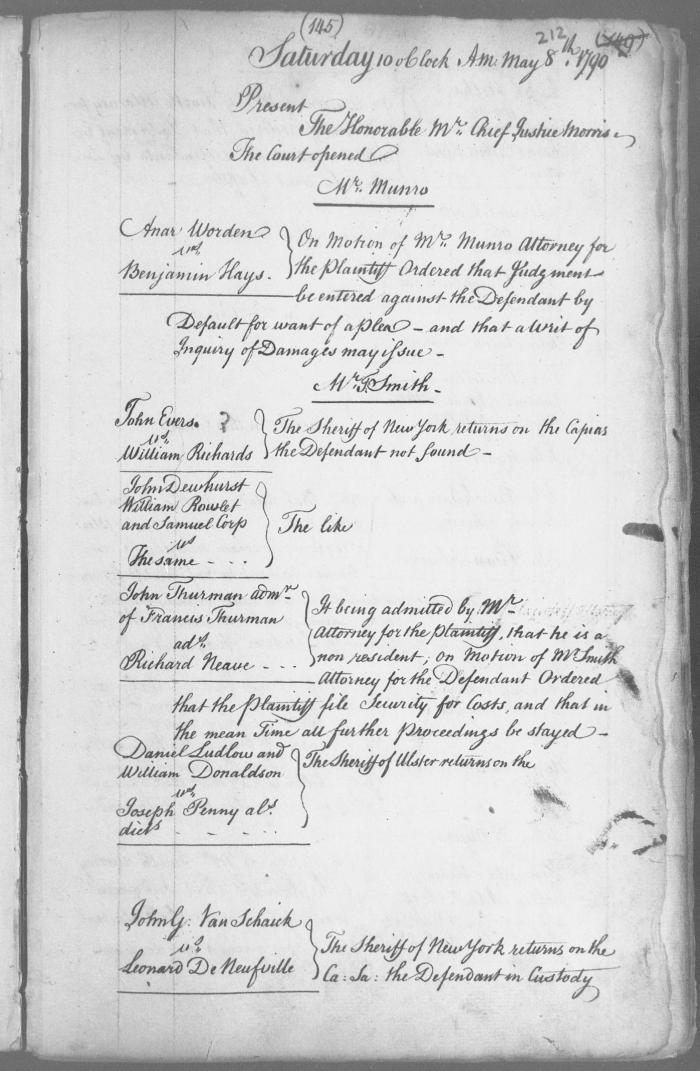 (145)
212 (149)
Saturday 10 oClock Am: May 8th. 1790
Present
The Honorable Mr. Chief Justice Morris
The Court opened
Mr. Munro
Anar Worden
vs.
Benjamin Hays.
On Motion of Mr. Munro Attorney for
the Plaintiff Ordered that Judgment
be entered against the Defendant by
Default for want of a plea - and that a writ of
Inquiry of Damages may issue -
Mr. T. Smith -
John Evers. ?
vs.
William Richards
The Sheriff of New York returns on the Capias
the Defendant not found -
John Dewhurst
William Rowlet
and Samuel Corp
vs
The same - - -
The like
John Thurman admr.
of Francis Thurman
ads.
Richard Neave - - -
It being admitted by Mr.
Attorney for the plaintiff, that he is a
non resident; on Motion of Mr. Smith
Attorney for the Defendant Ordered
that the plaintiff file Security for Costs, and that in
the mean Time all further Proceedings be stayed -
Daniel Ludlow and
William Donaldson
vs.
Joseph Penny als.
dicts - - - -
The Sheriff of Ulster returns on the
John G: Van Schaick
vs.
Leonard De Neufville
The Sheriff of New York returns on the
Ca: Sa: the Defendant in Custody